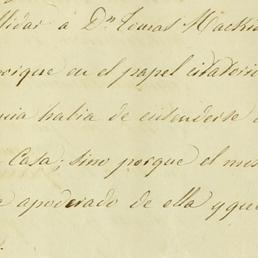 á Dn Tomas Mackie
porque en el papel citatorio
habia de entenderse
Casa; sino porque el mis
apoderado de ella y que